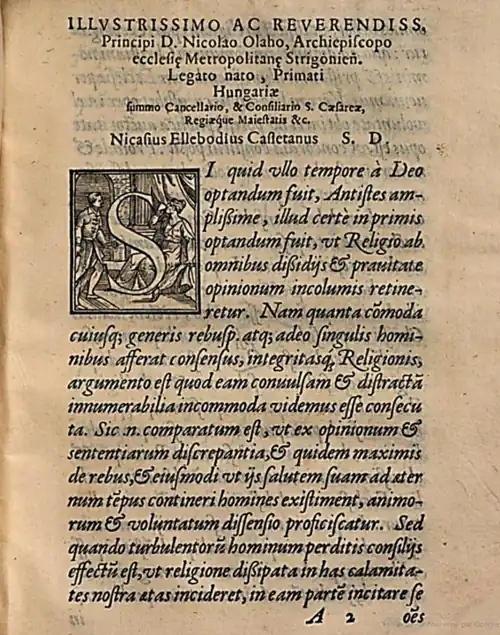 ILLVSTRISSIMO AC REVERENDISS,
Principi D. Nicolao Olaho, Archiepiscopo
ecclesię Metropolitanę Strigónieñ.
Legáto nato, Primati
Hungariæ
summo Cancellario, & Consiliario S. Cæsareæ,
Regiæque Maiestatis &c.
Nicasius Ellebodius Casletanus S. D
SI quid vllo tempore á Deo
optandum fuit, Antistes am-
plißime, illud certe in primis
optandum fuit, vt Religio ab
omnibus dißidijs & prauitate
opinionum incolumis retine-
retur. Nam quanta cõmoda
cuiusq; generis rebusp. atq; adeo singulis homi-
nibus afferat consensus, integritasq́; Religionis,
argumento est quod eam conuulsam & distractã
innumerabilia incommoda videmus esse consecu
ta. Sic .n. comparatum est, vt ex opinionum &
sententiarum discrepantia, & quidem maximis
de rebus, & eiusmodi vt ijs salutem suam ad æter
num tẽpus contineri homines existiment, animo-
rum & voluntatum dissensio proficiscatur. Sed
quando turbulentorũ hominum perditis consilijs
effectũ est, vt religione dißipata in has calamita-
tes nostra ætas incideret, in eam partẽ incitare se
A 2 oẽs